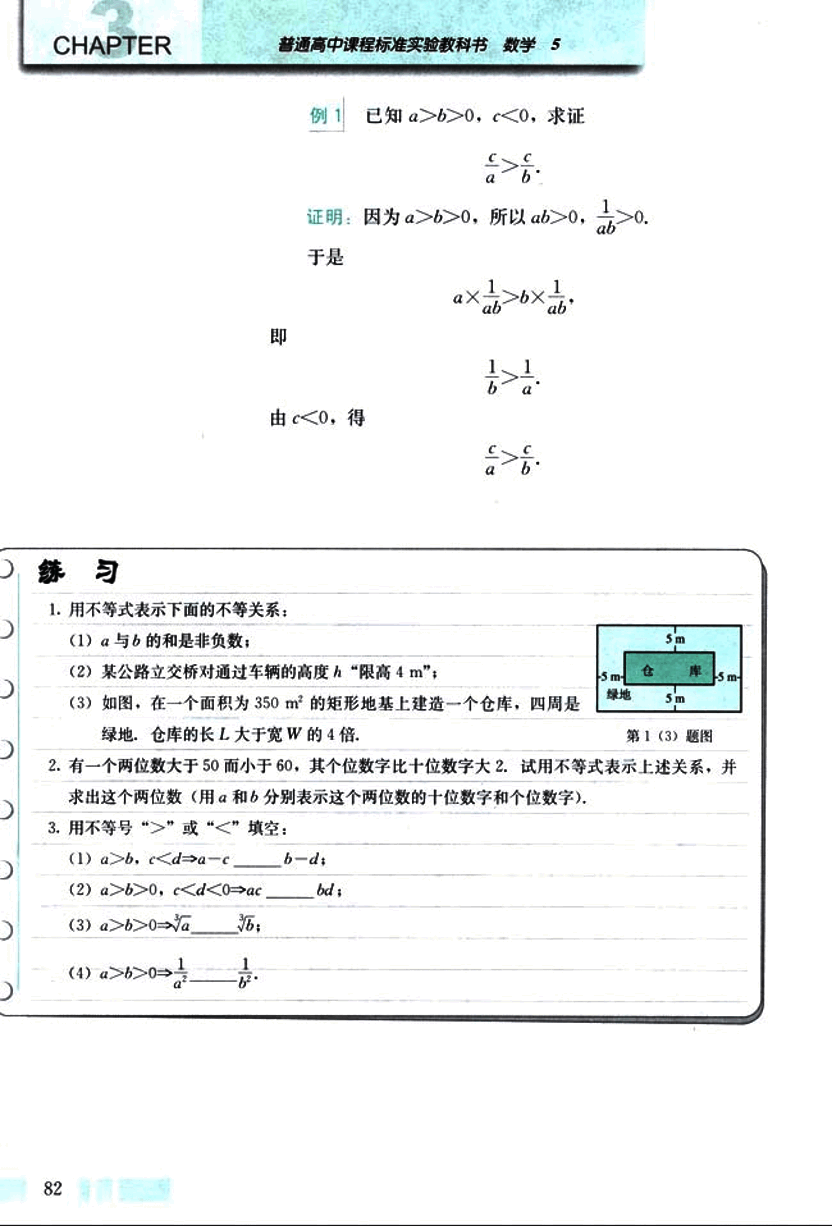 3
CHAPTER
普通高中课程标准实验教科书 数学 5
例 1 已知 a>b>0，c<0，求证
c/a>c/b.
证明：因为 a>b>0，所以 ab>0，1/ab>0.
于是
a×1/ab>b×1/ab，
即
1/b>1/a.
由 c<0，得
c/a>c/b.
练 习
1. 用不等式表示下面的不等关系：
（1）a 与 b 的和是非负数；
（2）某公路立交桥对通过车辆的高度 h“限高 4 m”；
（3）如图，在一个面积为 350 m² 的矩形地基上建造一个仓库，四周是
绿地. 仓库的长 L 大于宽 W 的 4 倍.
5 m
5 m 仓 库 5 m
绿地 5 m
第 1（3）题图
2. 有一个两位数大于 50 而小于 60，其个位数字比十位数字大 2. 试用不等式表示上述关系，并
求出这个两位数（用 a 和 b 分别表示这个两位数的十位数字和个位数字）.
3. 用不等号“>”或“<”填空：
（1）a>b，c<d⇒a-c ____ b-d；
（2）a>b>0，c<d<0⇒ac ____ bd；
（3）a>b>0⇒∛a ____ ∛b；
（4）a>b>0⇒1/a² ____ 1/b².
82